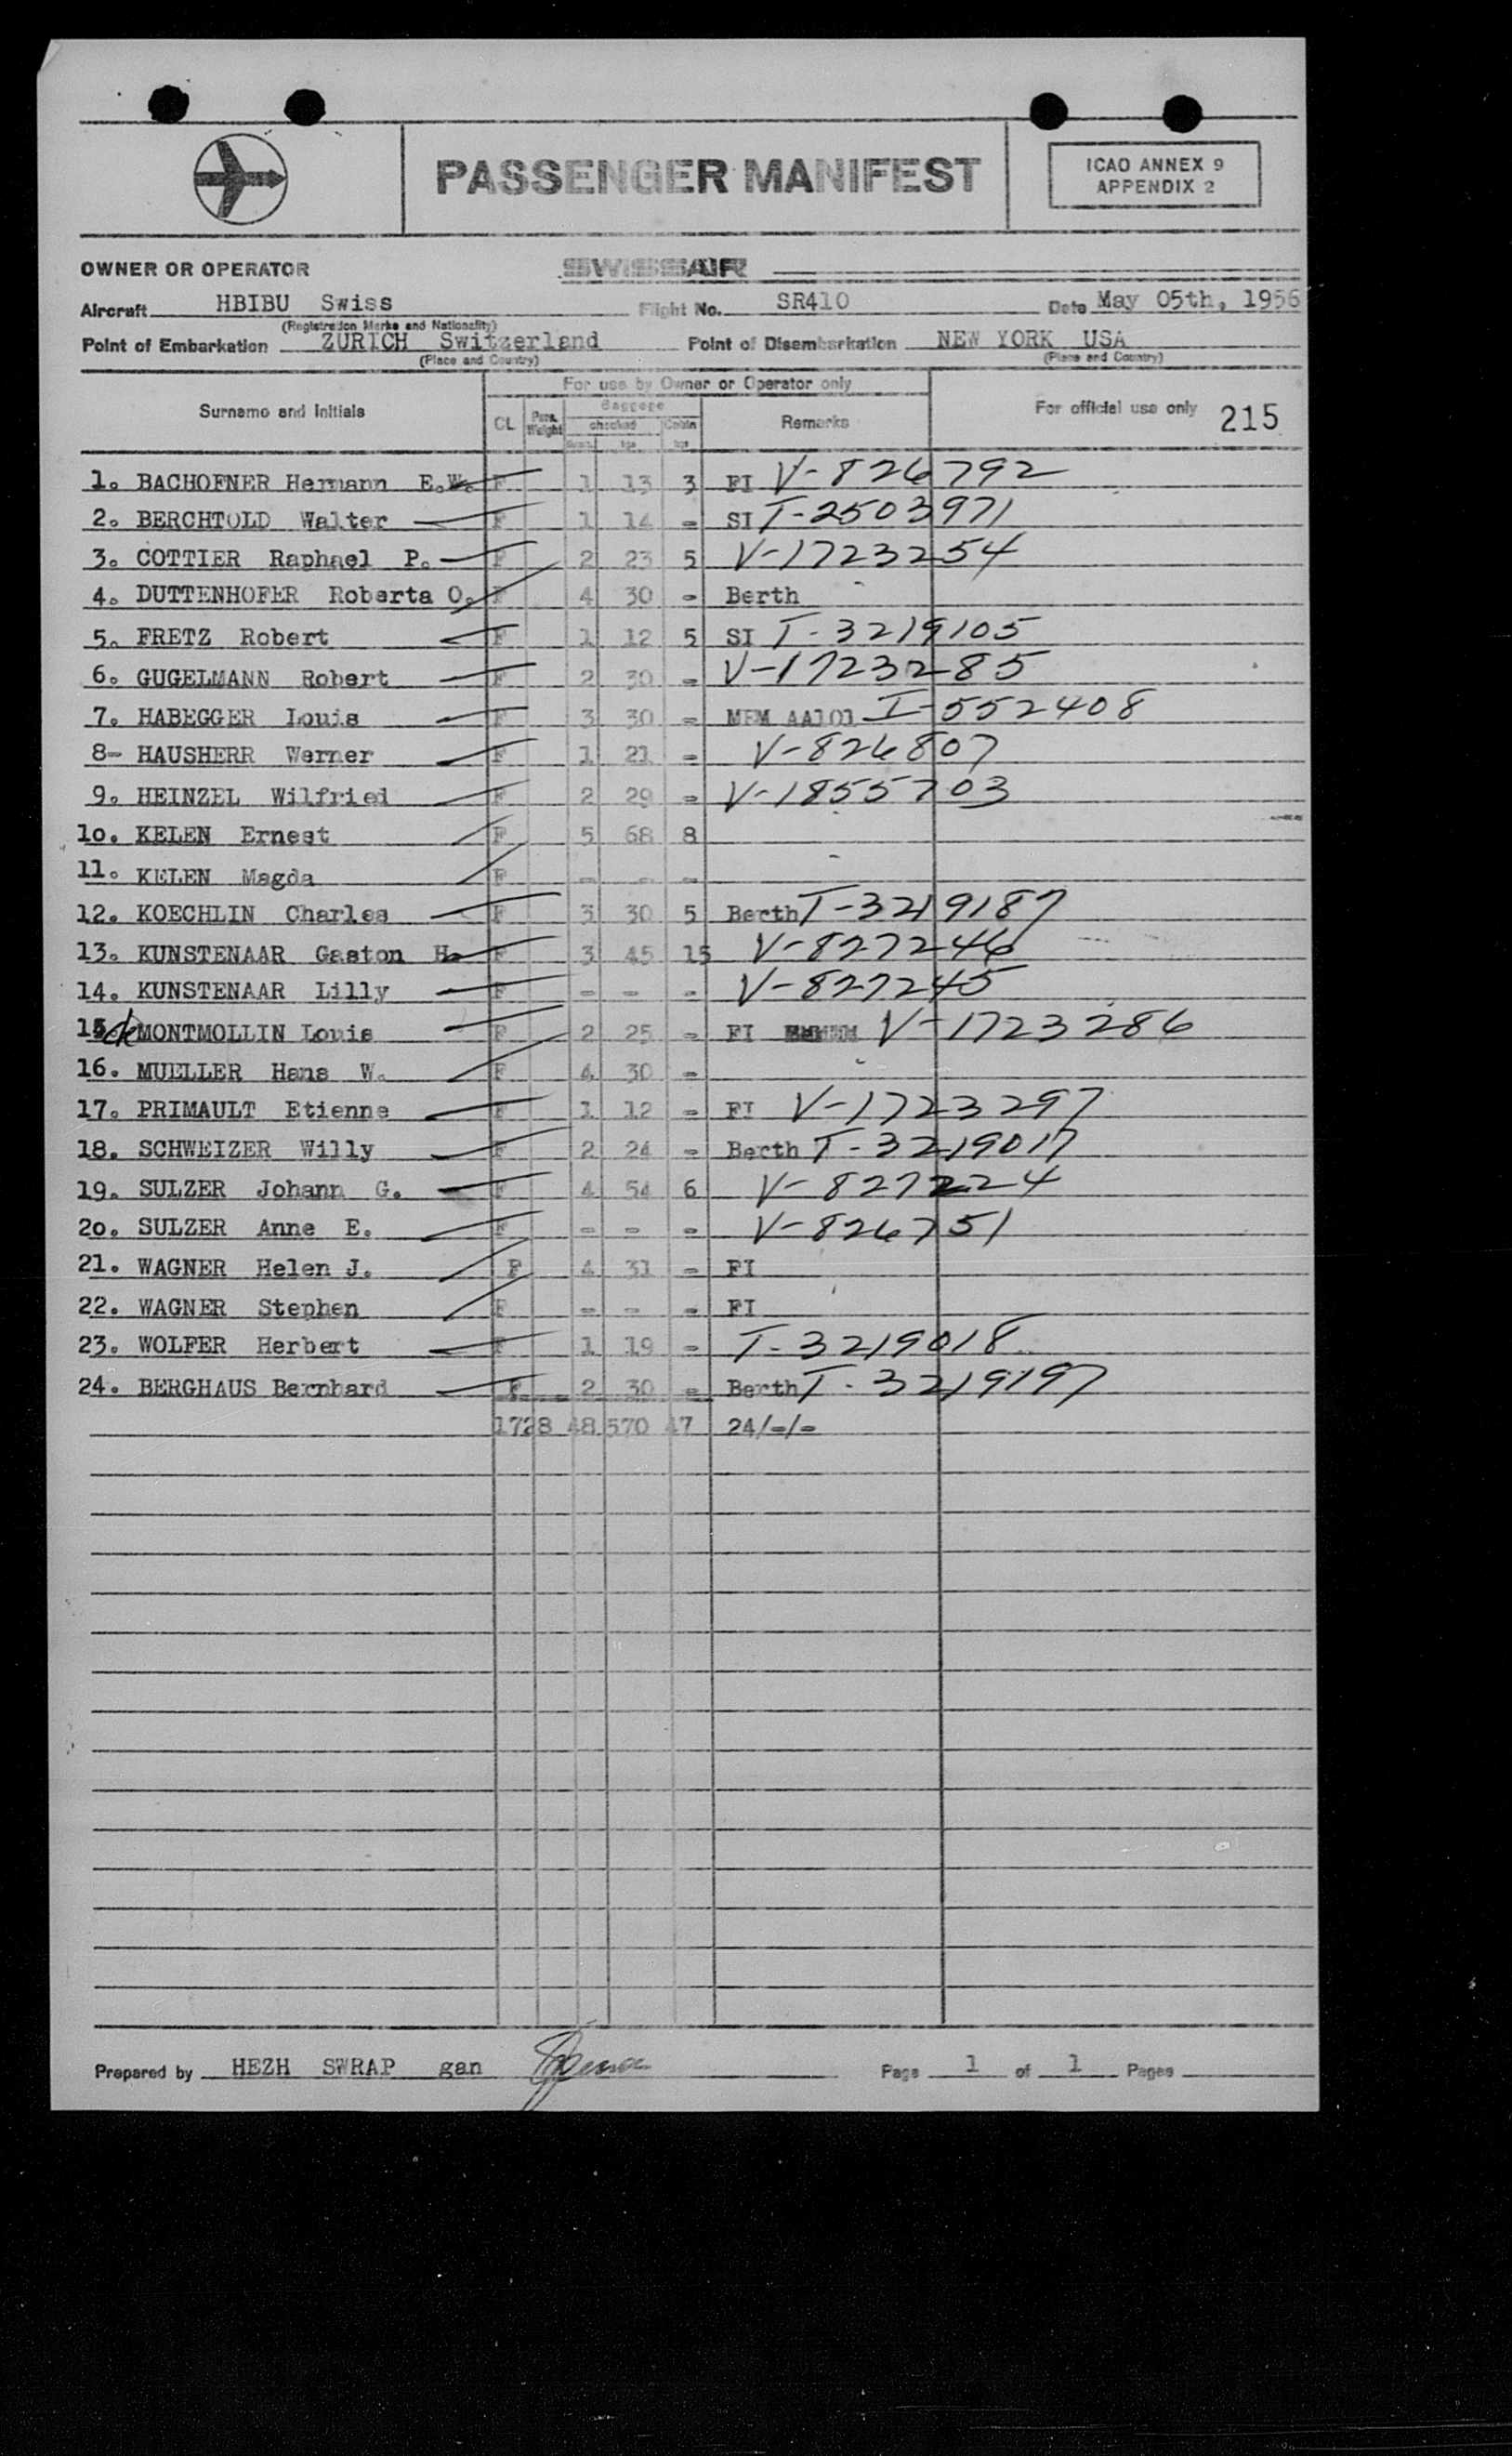 PASSENGER MANIFEST
ICAO ANNEX 9
APPENDIX 2
OWNER OR OPERATOR SWISSAIR
Aircraft HBIBU Swiss Flight No. SR410 Date May 05th, 1956
(Registration Marks and Nationality)
Point of Embarkation ZURICH Switzerland Point of Disembarkation NEW YORK USA
(Place and Country) (Place and Country)
For use by Owner or Operator only
Surname and Initials CL Pass. Weight Baggage checked Cabin Remarks For official use only 215
1. BACHOFNER Hermann E.W. F 1 13 3 FI V-826792
2. BERCHTOLD Walter F 1 14 - SI T-2503971
3. COTTIER Raphael P. F 2 23 5 V-1723254
4. DUTTENHOFER Roberta O. F 4 30 - Berth
5. FRETZ Robert F 1 12 5 SI T-3219105
6. GUGELMANN Robert F 2 30 - V-1723285
7. HABEGGER Louis F 3 30 - MEM AA101 I-552408
8- HAUSHERR Werner F 1 21 - V-826807
9. HEINZEL Wilfried F 2 29 - V-1855703
10. KELEN Ernest F 5 68 8
11. KELEN Magda F - - -
12. KOECHLIN Charles F 3 30 5 Berth T-3219187
13. KUNSTENAAR Gaston H. F 3 45 15 V-827246
14. KUNSTENAAR Lilly F - - - V-827245
15. de MONTMOLLIN Louis F 2 25 - FI V-1723286
16. MUELLER Hans W. F 4 30 -
17. PRIMAULT Etienne F 1 12 - FI V-1723297
18. SCHWEIZER Willy F 2 24 - Berth T-3219017
19. SULZER Johann G. F 4 54 6 V-827224
20. SULZER Anne E. F - - - V-826751
21. WAGNER Helen J. F 4 31 - FI
22. WAGNER Stephen F - - - FI
23. WOLFER Herbert F 1 19 - T-3219018
24. BERGHAUS Bernhard F 2 30 - Berth T-3219197
1728 48 570 47 24/-/-
Prepared by HEZH SWRAP gan Page 1 of 1 Pages